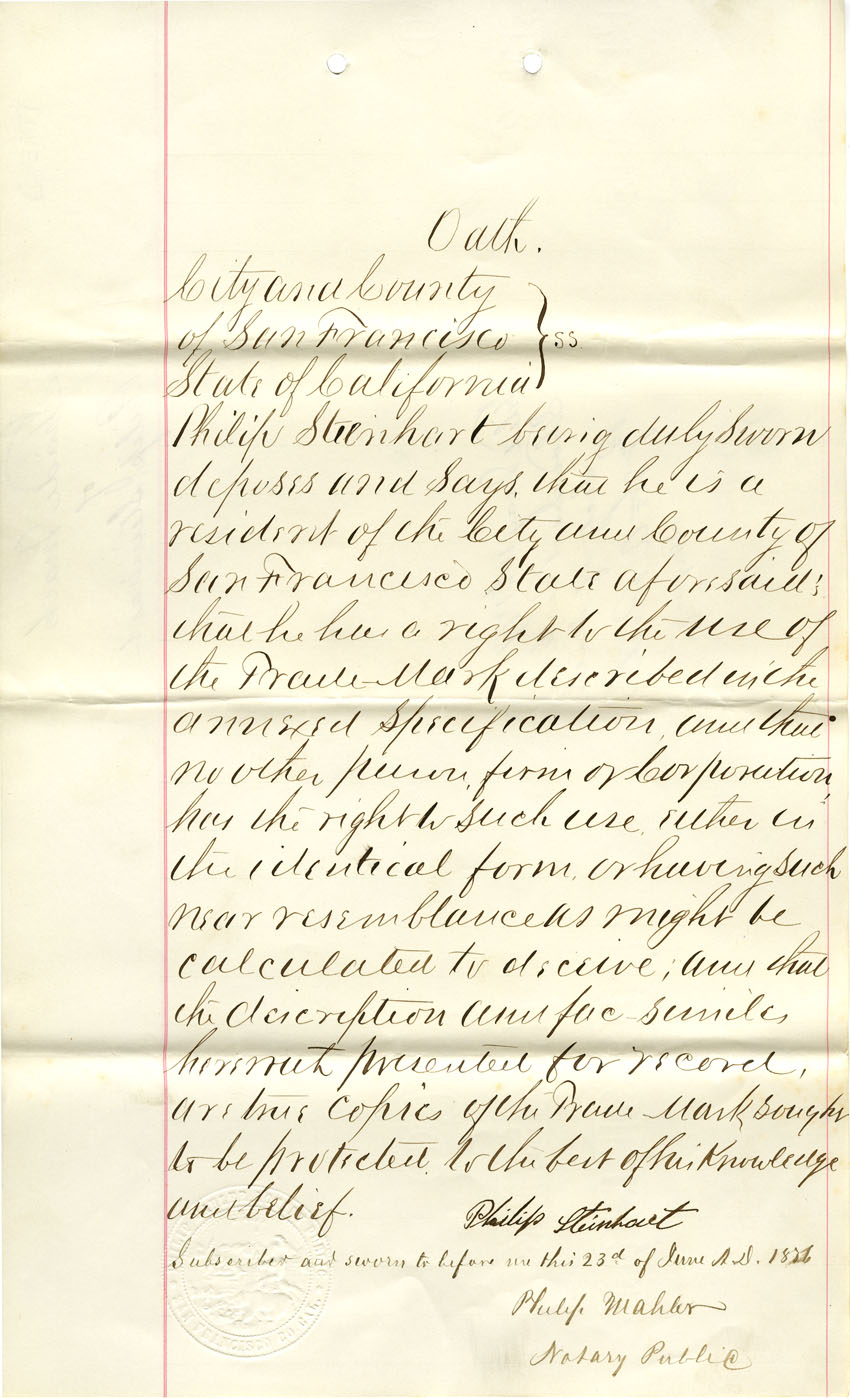 Oath.
City and County
of San Francisco } ss.
State of California
Philip Steinhart being duly sworn
deposes and says, that he is a
resident of the City and County of
San Francisco State aforesaid;
that he has a right to the use of
the Trade-Mark described in the
annexed specification, and that
no other person, firm or Corporation,
has the right to such use, either in
the identical form, or having such
near resemblance as might be
calculated to deceive; and that
the description and fac-similes
herewith presented for record,
are true copies of the Trade-Mark sought
to be protected, to the best of his knowledge
and belief.
Philip Steinhart
Subscribed and sworn to before me this 23d of June A.D. 1876
Philip Mahler
Notary Public
SAN FRANCISCO CO CAL.